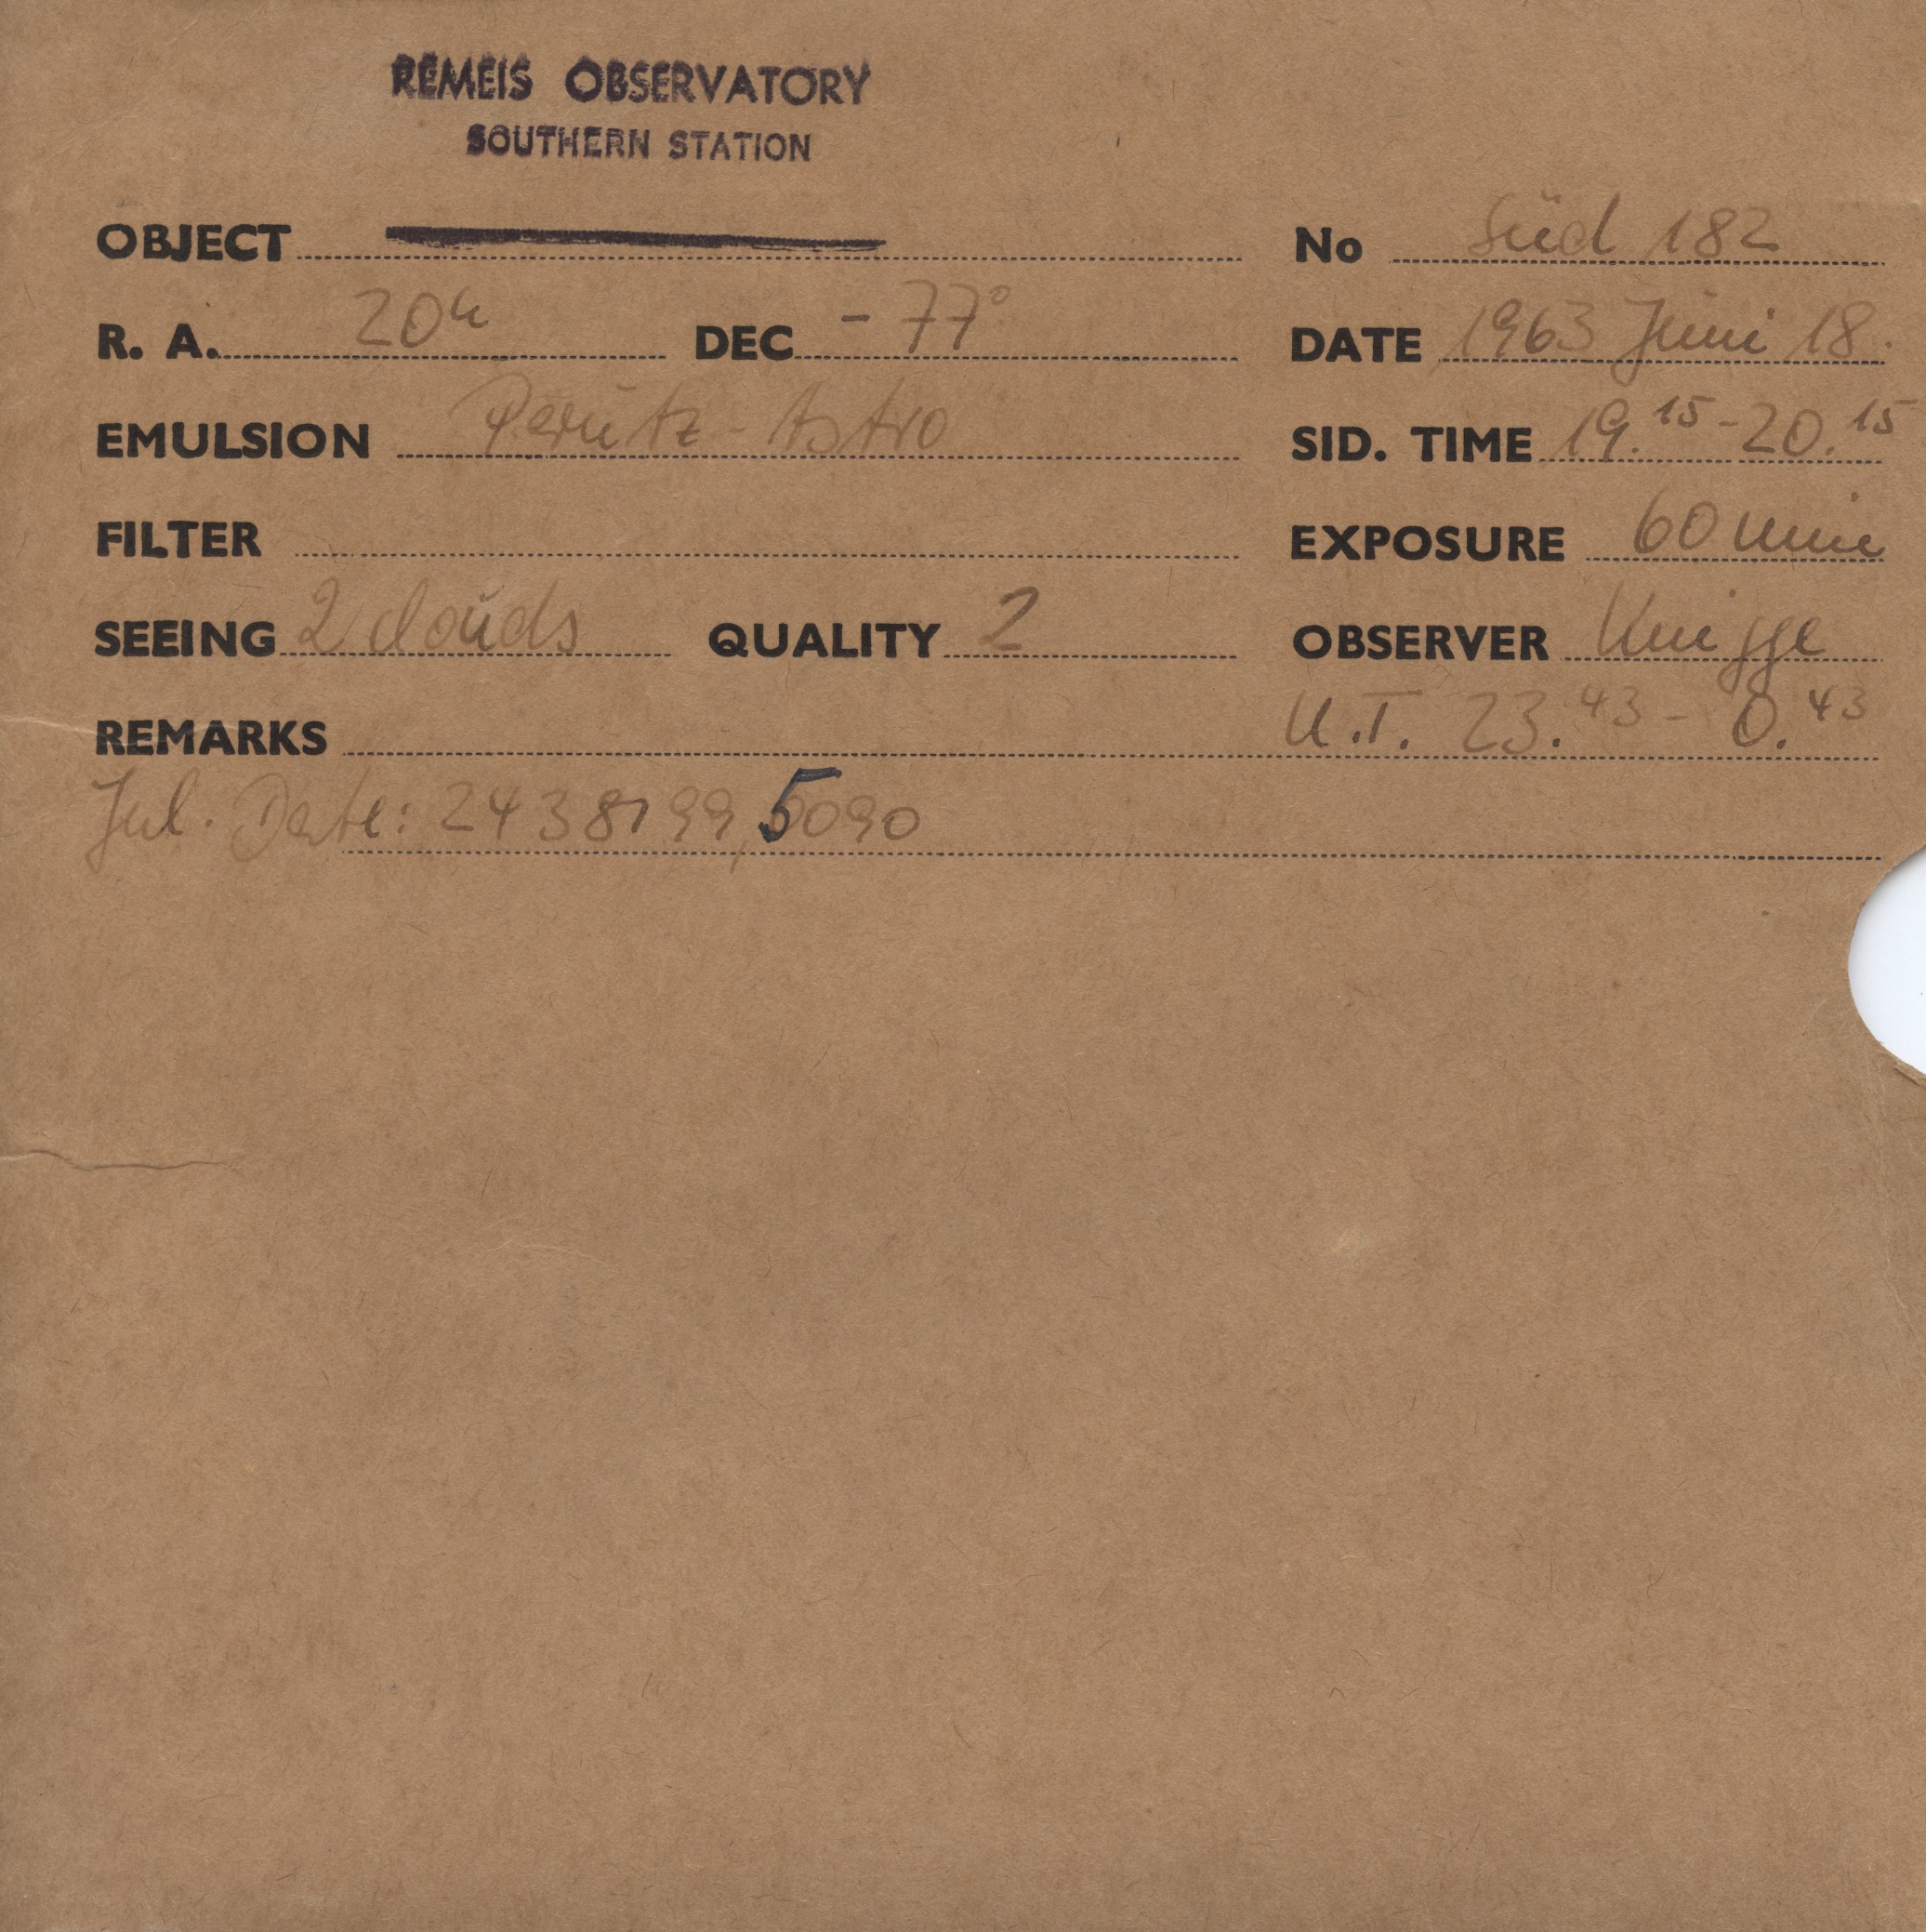 REMEIS OBSERVATORY
SOUTHERN STATION
OBJECT No Süd 182
R. A. 20h DEC -77° DATE 1963 Juni 18.
EMULSION Perutz-Astro SID. TIME 19.15-20.15
FILTER EXPOSURE 60 min
SEEING 2 clouds QUALITY 2 OBSERVER Knigge
REMARKS U.T. 23.43 - 0.43
Jul. Date: 2438199,5090